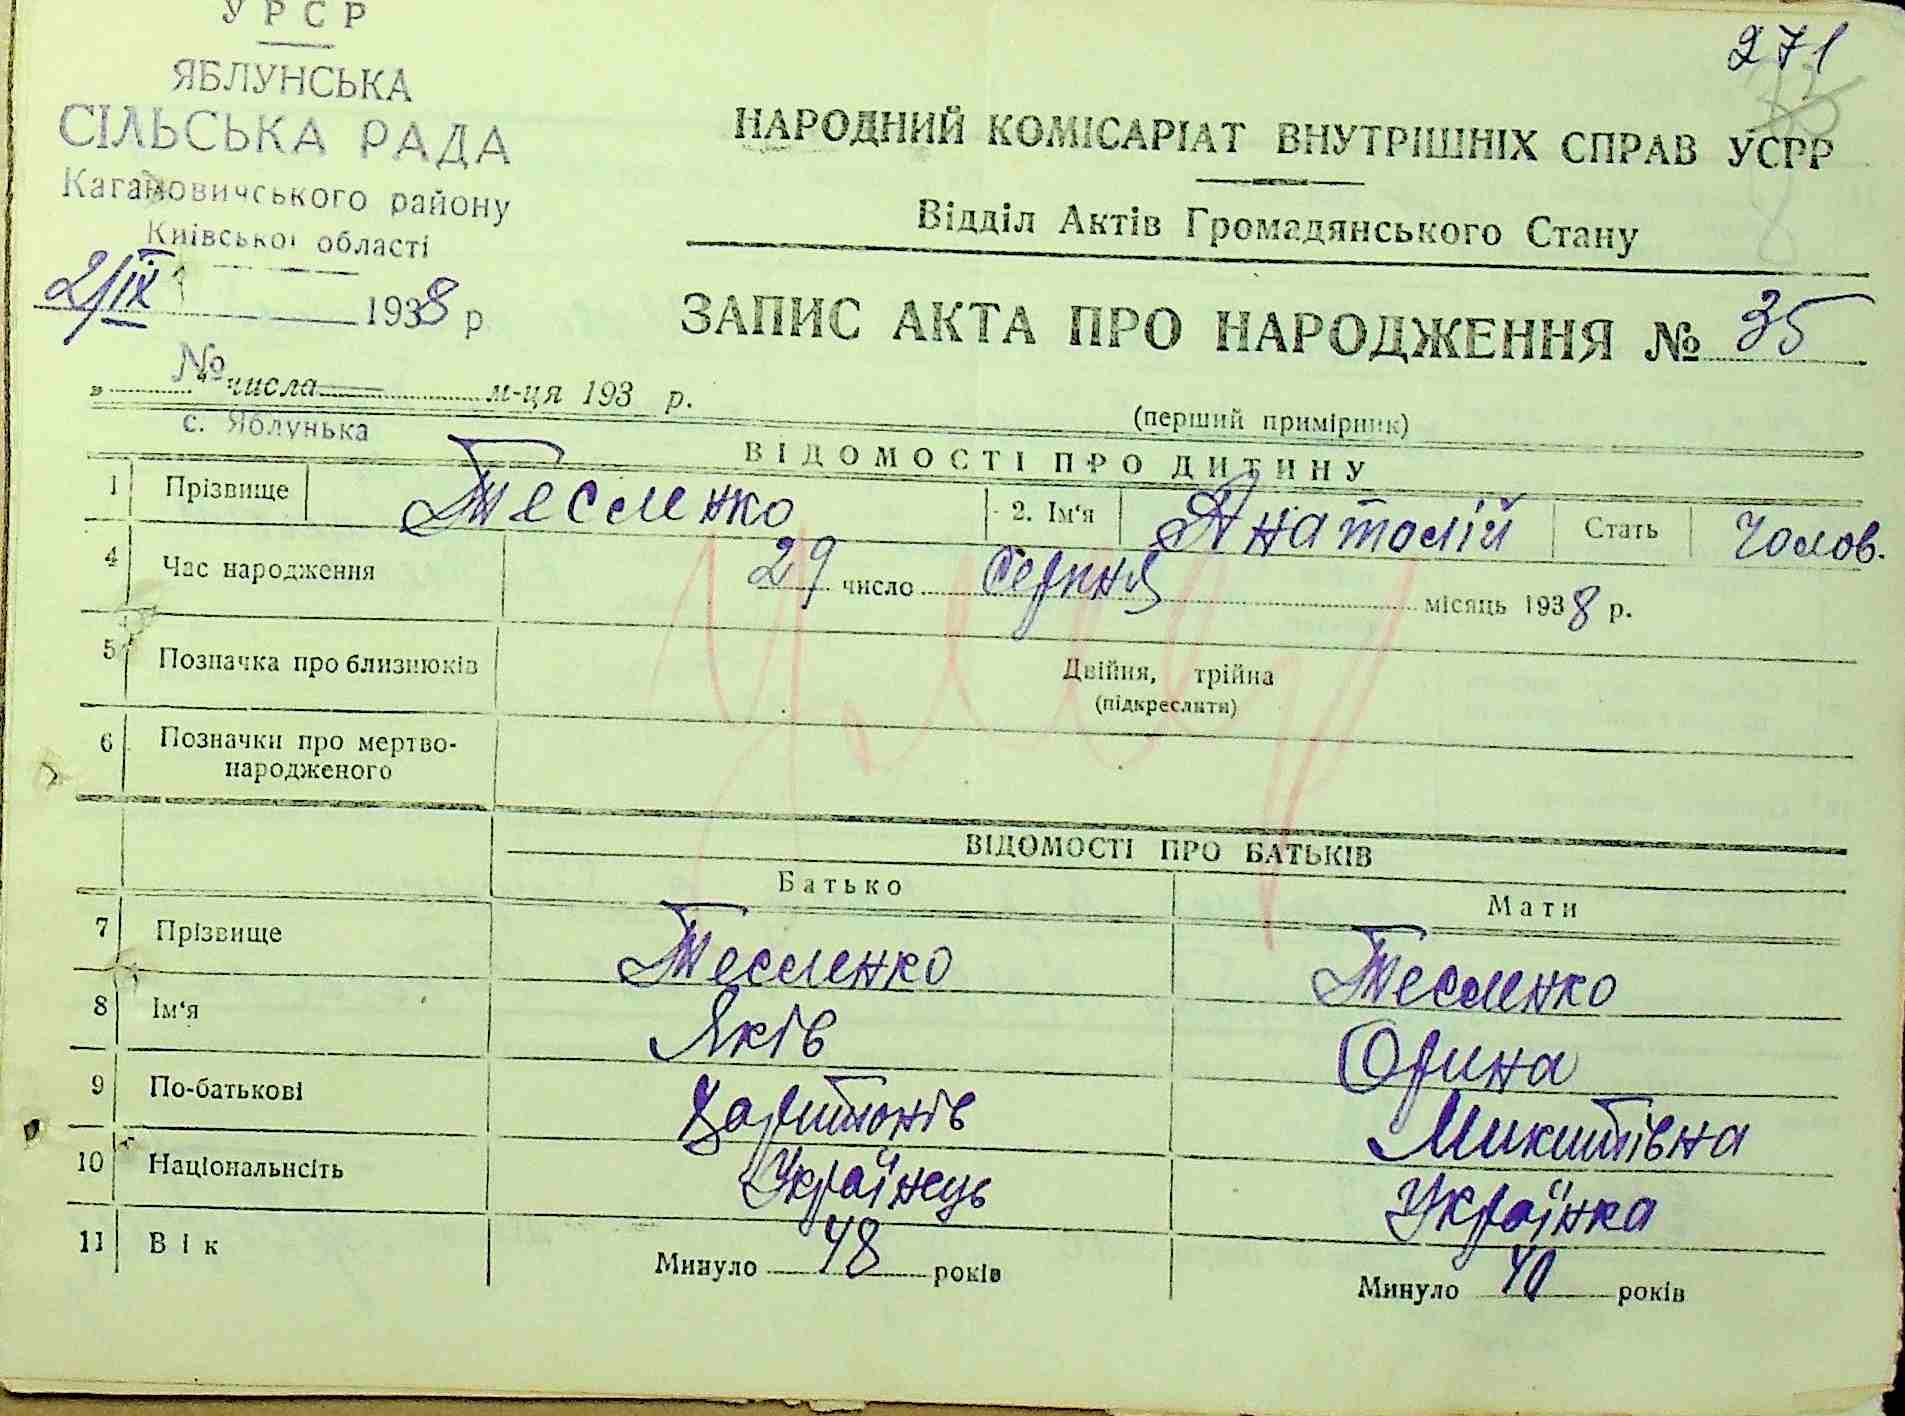 УРСР
ЯБЛУНСЬКА
СІЛЬСЬКА РАДА
Кагановичського району
Київської області
2/ІХ 1938 р
№
271
НАРОДНИЙ КОМІСАРІАТ ВНУТРІШНІХ СПРАВ УСРР
Відділ Актів Громадянського Стану
ЗАПИС АКТА ПРО НАРОДЖЕННЯ № 35
„ числа м-ця 193 р.
с. Яблунька
(перший примірник)
ВІДОМОСТІ ПРО ДИТИНУ
1 Прізвище Тесленко 2. Ім'я Анатолій Стать Чолов.
4 Час народження 29 число Серпня місяць 1938 р.
5 Позначка про близнюків Двійня, трійна
(підкреслити)
6 Позначки про мертво-
народженого
ВІДОМОСТІ ПРО БАТЬКІВ
Батько Мати
7 Прізвище Тесленко Тесленко
8 Ім'я Яків Орина
9 По-батькові Харитонів Микитівна
10 Національнсіть Українець Українка
11 Вік Минуло 48 років Минуло 40 років